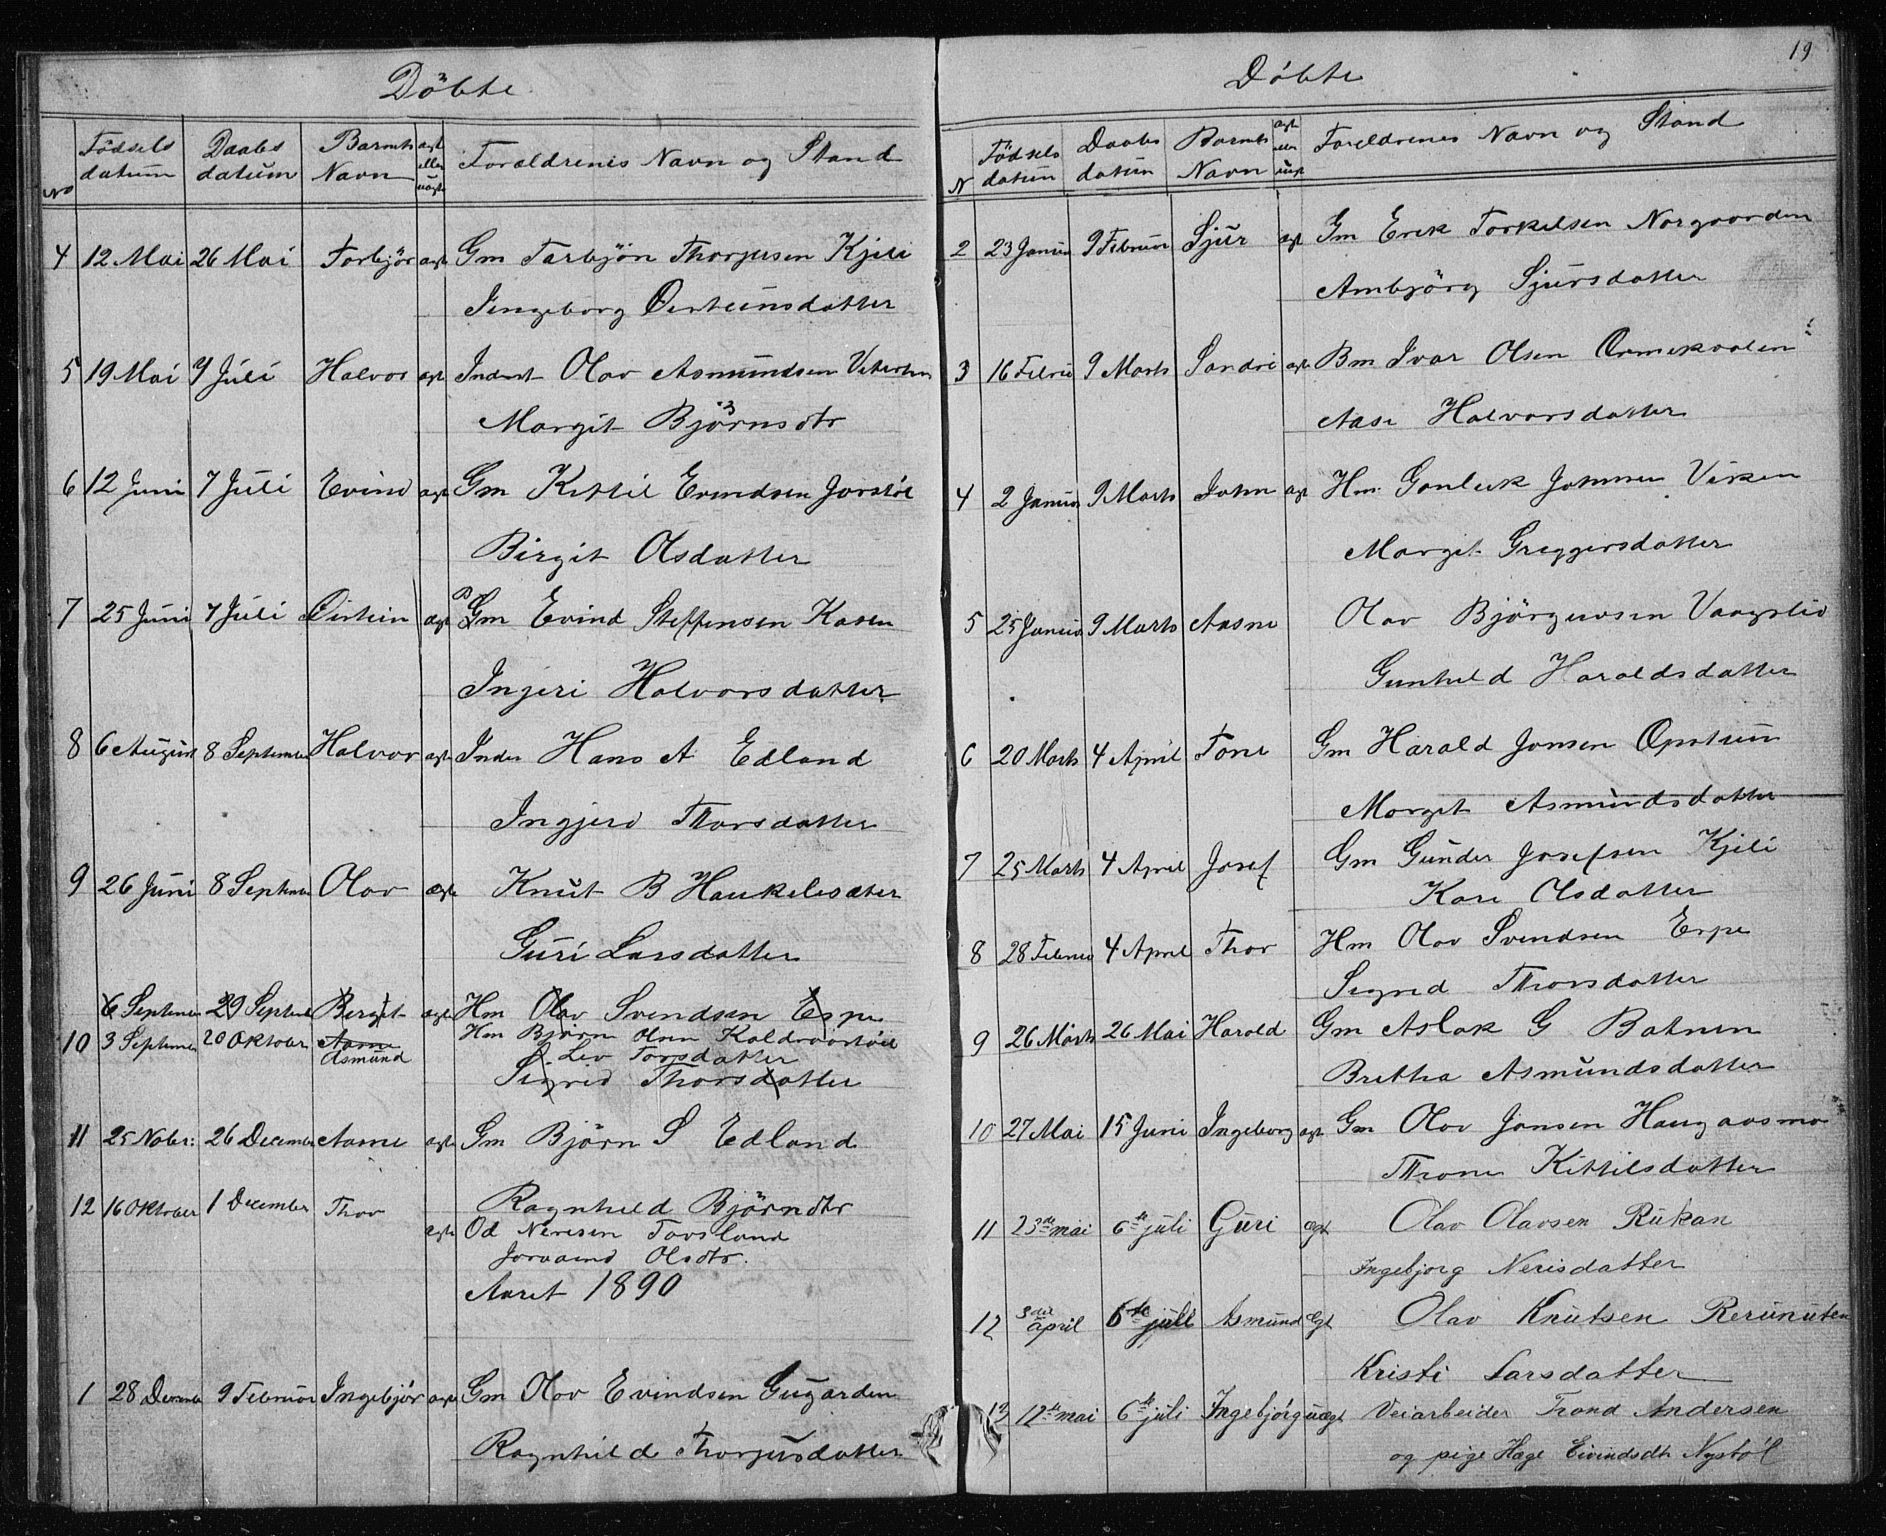 Döbte
No
Fødsels datum
Daabs datum
Barnets Navn
ægt eller uægt
Forældrenes Navn og Stand
4 12 Mai 26 Mai Torbjør ægt Gm Tarbjön Thorjusen Kjili
Ingeborg Øisteinsdatter
5 19 Mai 7 Juli Halvor ægt Inderst Olav Asmundsen
Margit Björnsdtr
6 12 Juni 7 Juli Evind ægt Gm Kittil Evindsen Jorstöl
Birgit Olsdatter
7 25 Juni 7 Juli Øistein ægt Gm Evind Steffensen Kasen
Ingjeri Halvorsdatter
8 6 August 8 September Halvor ægte Inder Hans A Edland
Ingjerd Thorsdatter
9 26 Juni 8 Septembe Olav ægte Knut B Haukelisæter
Guri Larsdatter
6 September 29 September Bergit ægte Hm Olav Svendsen Espe
10 3 September 20 Oktober Aasne Hm Björn Olsen
Asmund Liv Torsdatter
Sigrid Thorsdatter
11 25 Nober: 26 December Aasne ægte Gm Björn S Edland
Ragnhild Björndtr
12 16 Oktober 1 December Thor ægte Od Neresen Tovsland
Joraand Olsdtr.
Aaret 1890
1 28 December 9 Februar Ingebjør ægte Gm Olav Evindsen Gugarden
Ragnhild Thorjusdatter
19
Döbte
N
Fødsels datum
Daabs datum
Barnets Navn
ægt eller uægt
Foreldrenes Navn og Stand
2 23 Januar 9 Februar Sjur ægt Gm Erik Torkelsen Norgaarden
Ambjörg Sjursdatter
3 16 Februar 9 Marts Sondre ægte Bm Ivar Olsen
Aase Halvorsdatter
4 2 Januar 9 Marts John ægt Hm Gonleik Johnsen Virken
Margit Greggersdatter
5 25 Januar 9 Marts Aasne Olav Björguvsen Vaagslid
Gunhild Haraldsdatter
6 20 Marts 4 April Tone Gm Harald Jonsen Opistuun
Margit Asmundsdatter
7 25 Marts 4 April Josef Gm Gunder Josefsen Kjili
Kari Olsdatter
8 28 Februar 4 April Thor Hm Olav Svendsen Espe
Sigrid Thorsdatter
9 26 Marts 26 Mai Harald Gm Aslak G Bahuen
Britha Asmundsdatter
10 27 Mai 15 Juni Ingeborg ægt Gm Olav Jonsen Haugaasmo
Throne Kittilsdatter
11 23de mai 6te juli Guri ægt Olav Olavsen Rukan
Ingebjorg Nerisdatter
12 3die april 6te juli Asmund Ægt Olav Knutsen Rerunuten
Kristi Larsdatter
13 12te mai 6te juli Ingebjörg uægt Veiarbeider Trond Andersen
og pige Hæge Eivindsdtr Nystöl